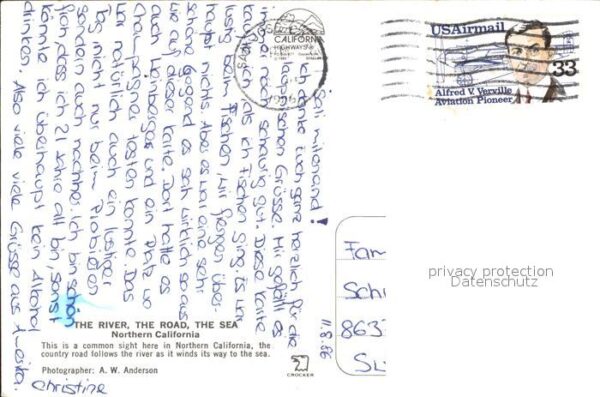 Sali mitenand!
Ich danke Euch ganz herzlich für die
Grüsse. Mir gefällt es
immer noch schaurig gut. Diese Karte
kaufte ich, als ich Fischen ging. Es war
lustig beim Fischen, wir fiengen über-
haupt nichts. Aber es war eine sehr
schöne Gegend es sah wirklich so aus
wie auf dieser Karte. Dort hatte es
auch Weinberge und ein Platz wo
Champagner testen konnte. Das
war natürlich auch ein lustiger
Tag nicht nur beim Probieren
sondern auch nachher. Ich bin schön
froh dass ich 21 Jahre alt bin, sonst
könnte ich überhaupt kein Alkohol
drinken. Also viele viele Grüsse aus
Christine
11.8.86
CALIFORNIA
HIGHWAYS
USAirmail
33
Alfred V. Verville
Aviation Pioneer
Fam
Sch
863
privacy protection
Datenschutz
THE RIVER, THE ROAD, THE SEA
Northern California
This is a common sight here in Northern California, the
country road follows the river as it winds its way to the sea.
Photographer: A. W. Anderson
CROCKER